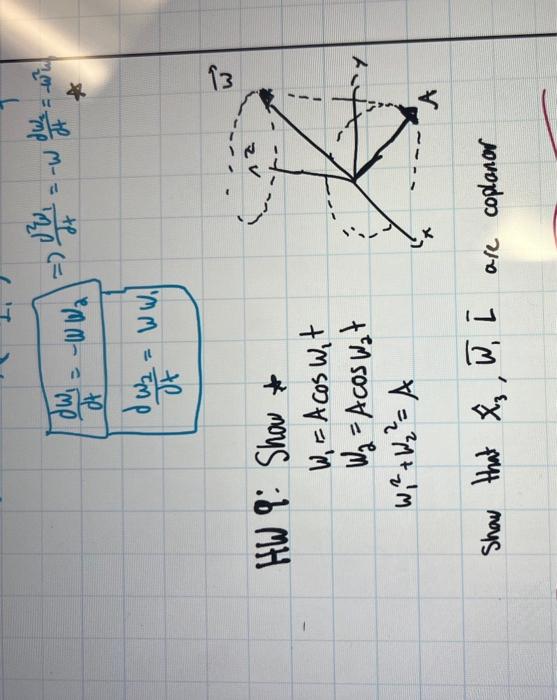 dw₁/dt = -w w₂ => d²w₁/dt = -w dw₂/dt = -w²w₁ *
dw₂/dt = w w₁
HW 9: Show *
w₁ = A cos w₁t
w₂ = A cos w₂t
w₁² + w₂² = A
w
z
y
A
x
Show that x̂₃, w̄, L̄ are coplanar